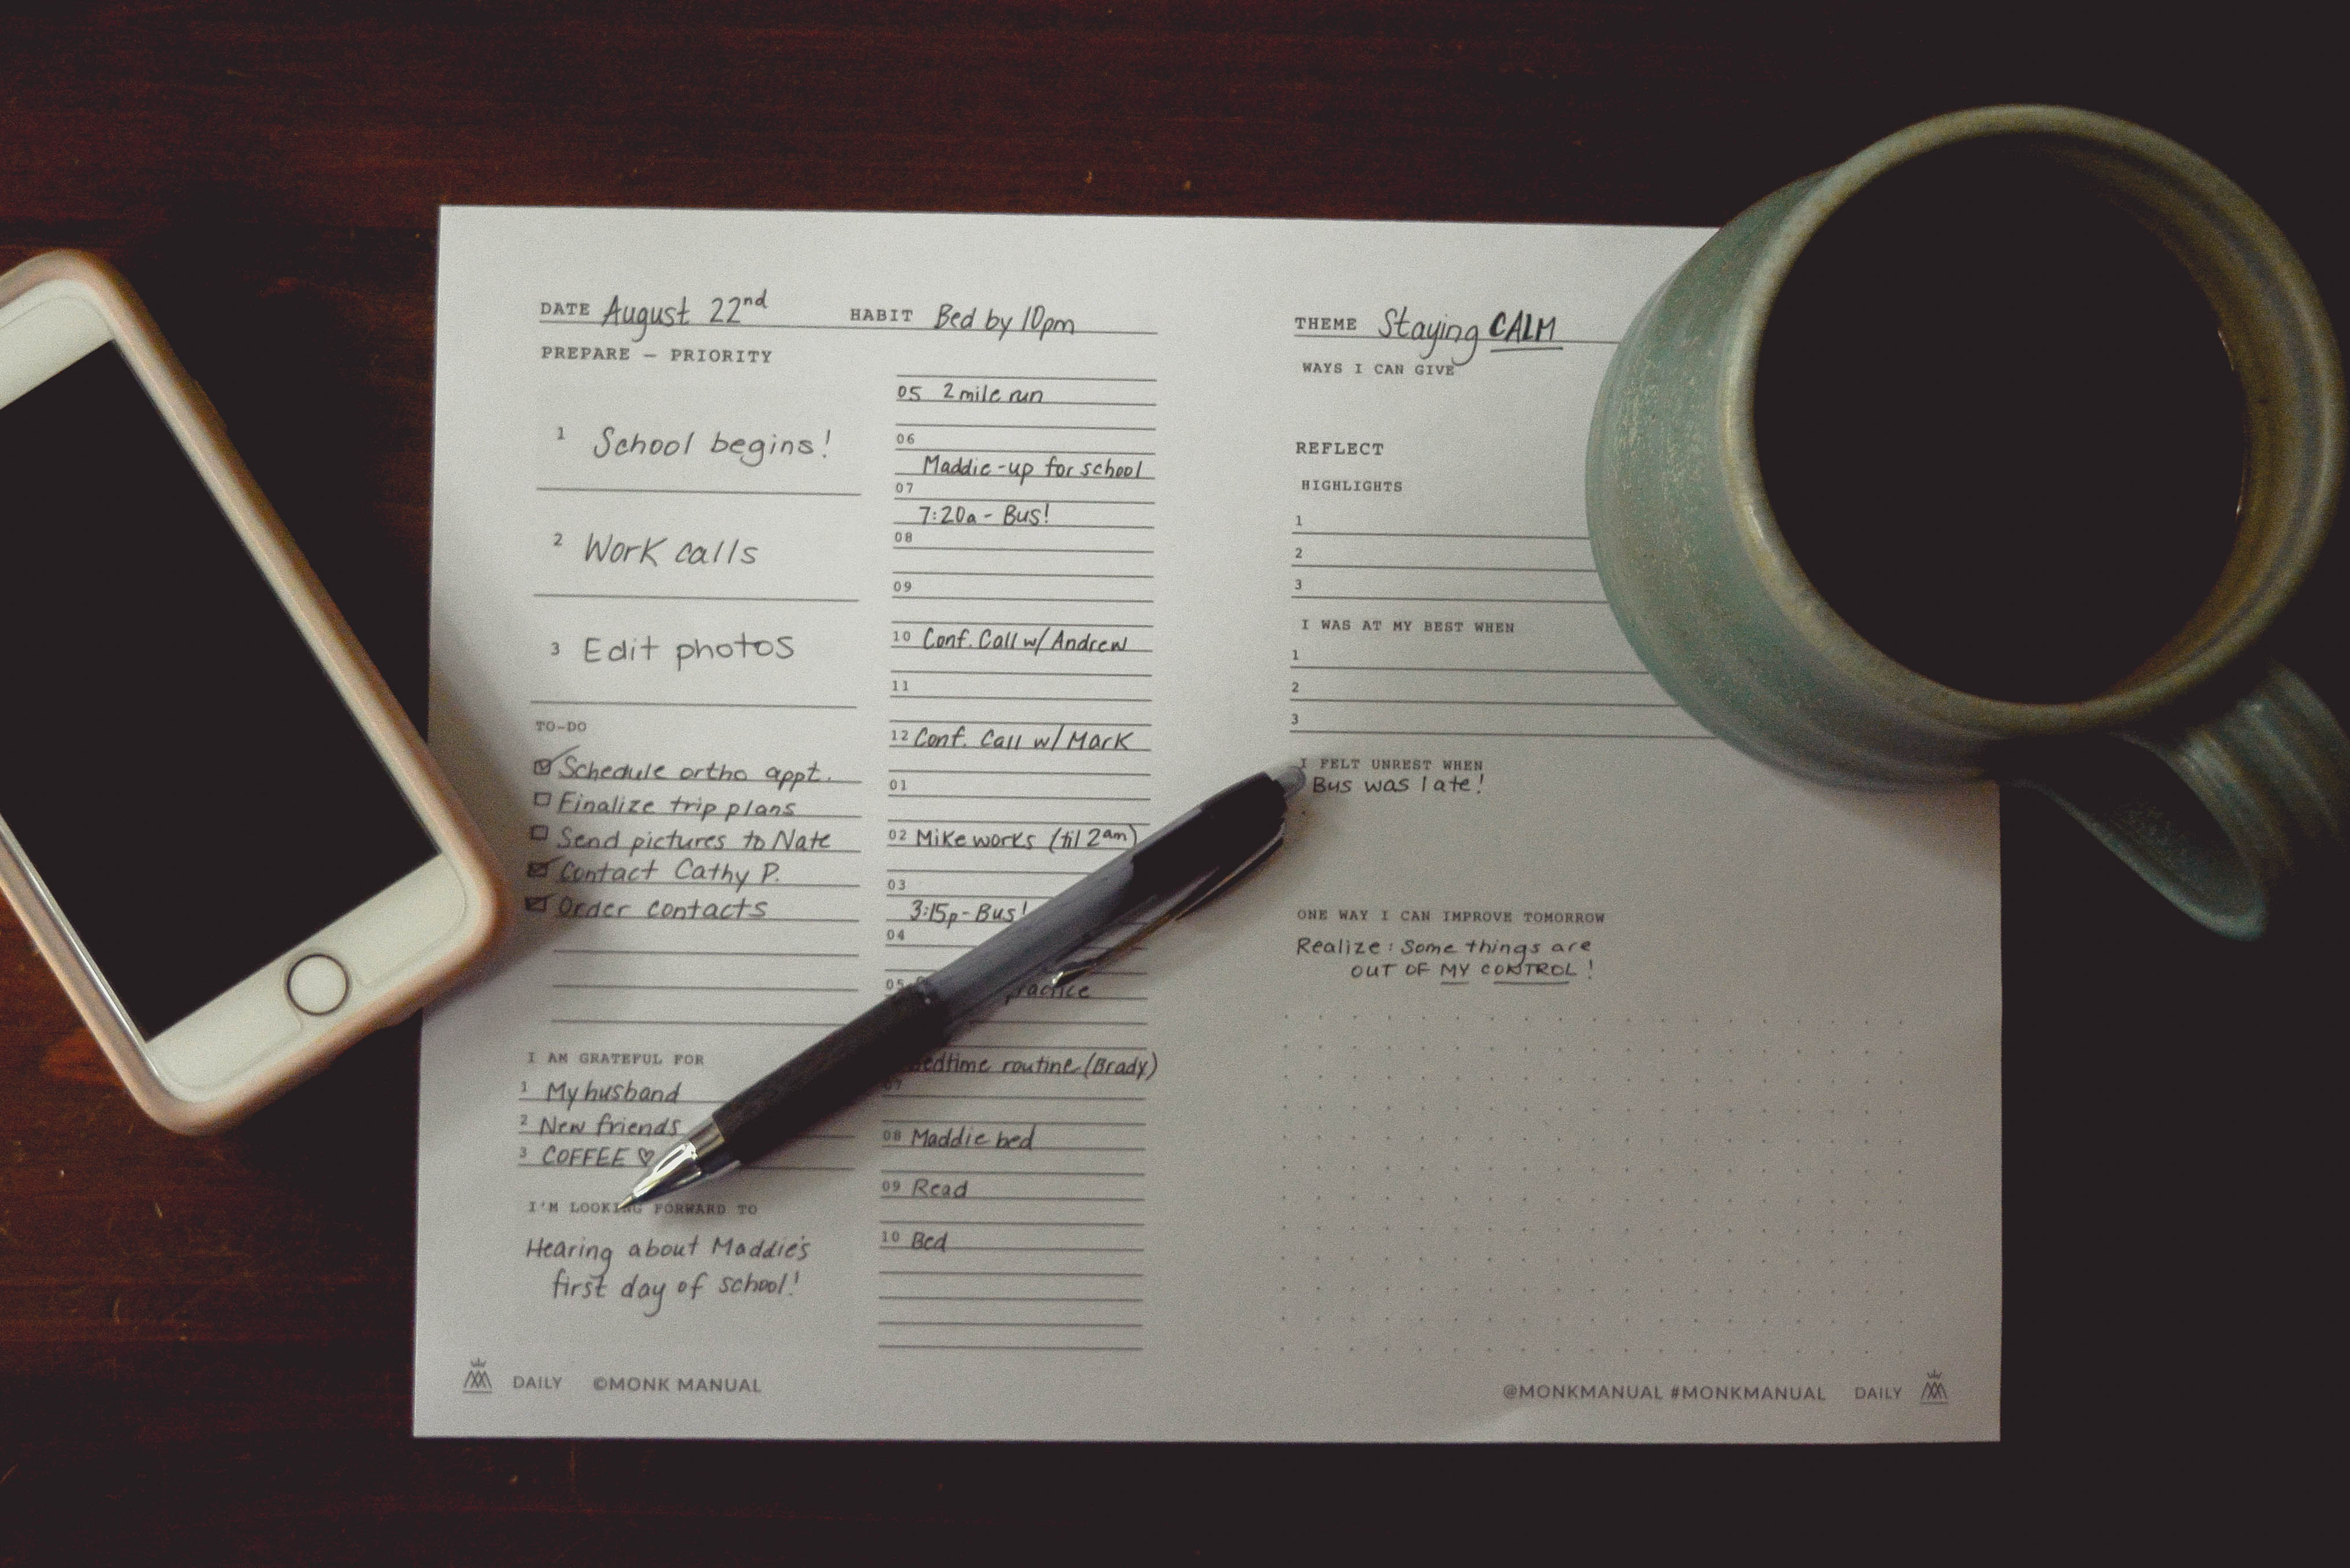 DATE August 22nd
HABIT Bed by 10pm
PREPARE — PRIORITY
1 School begins!
2 Work calls
3 Edit photos
TO-DO
Schedule ortho appt.
Finalize trip plans
Send pictures to Nate
Contact Cathy P.
Order contacts
I AM GRATEFUL FOR
1 My husband
2 New friends
3 COFFEE ♡
I'M LOOKING FORWARD TO
Hearing about Maddie's
first day of school!
05 2 mile run
06
Maddie-up for school
07
7:20a - Bus!
08
09
10 Conf. Call w/ Andrew
11
12 Conf. Call w/ Mark
01
02 Mike works (til 2am)
03
3:15p - Bus!
04
05 practice
bedtime routine (Brady)
07
08 Maddie bed
09 Read
10 Bed
DAILY ©MONK MANUAL
THEME Staying CALM
WAYS I CAN GIVE
REFLECT
HIGHLIGHTS
1
2
3
I WAS AT MY BEST WHEN
1
2
3
I FELT UNREST WHEN
Bus was late!
ONE WAY I CAN IMPROVE TOMORROW
Realize: Some things are
OUT OF MY CONTROL!
@MONKMANUAL #MONKMANUAL DAILY